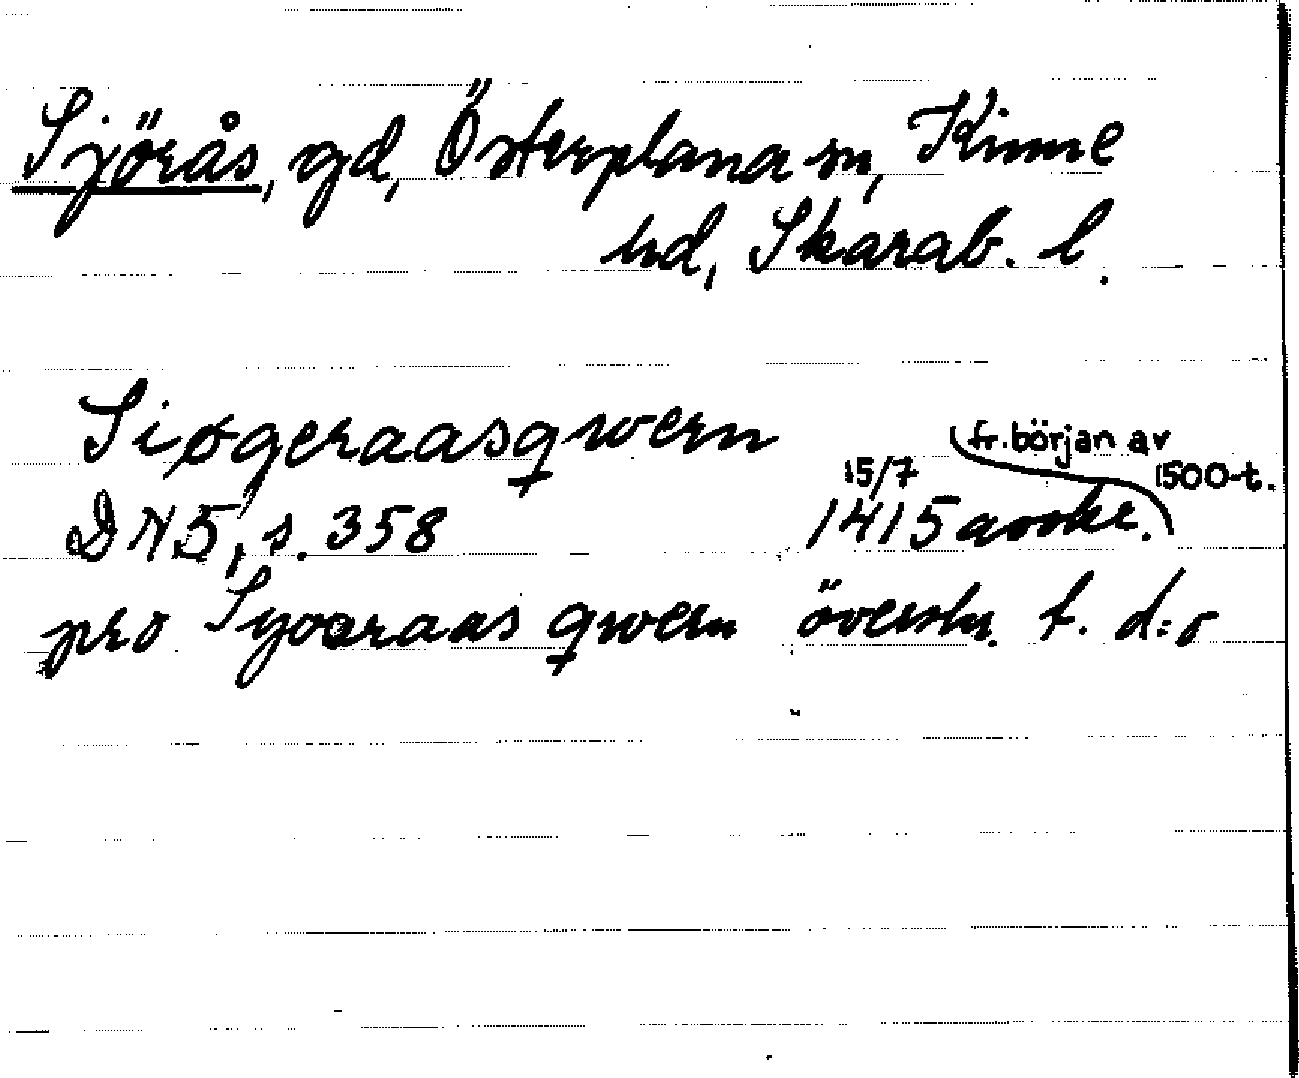 Sjörås, gd, Österplana sn, Kinne
hd, Skarab. l.
Siøgeraasqwern
fr. början av
15/7 1500-t.
DN 5, s. 358 1415 avskr.
pro Syoeraas qwern överstr. f. d:o